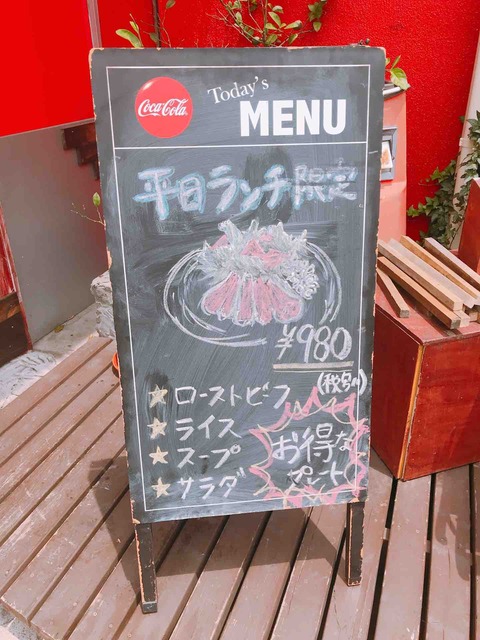 Coca-Cola
Today's
MENU
平日ランチ限定
¥980
(税別)
★ローストビーフ
★ライス
★スープ
★サラダ
お得な
プレート